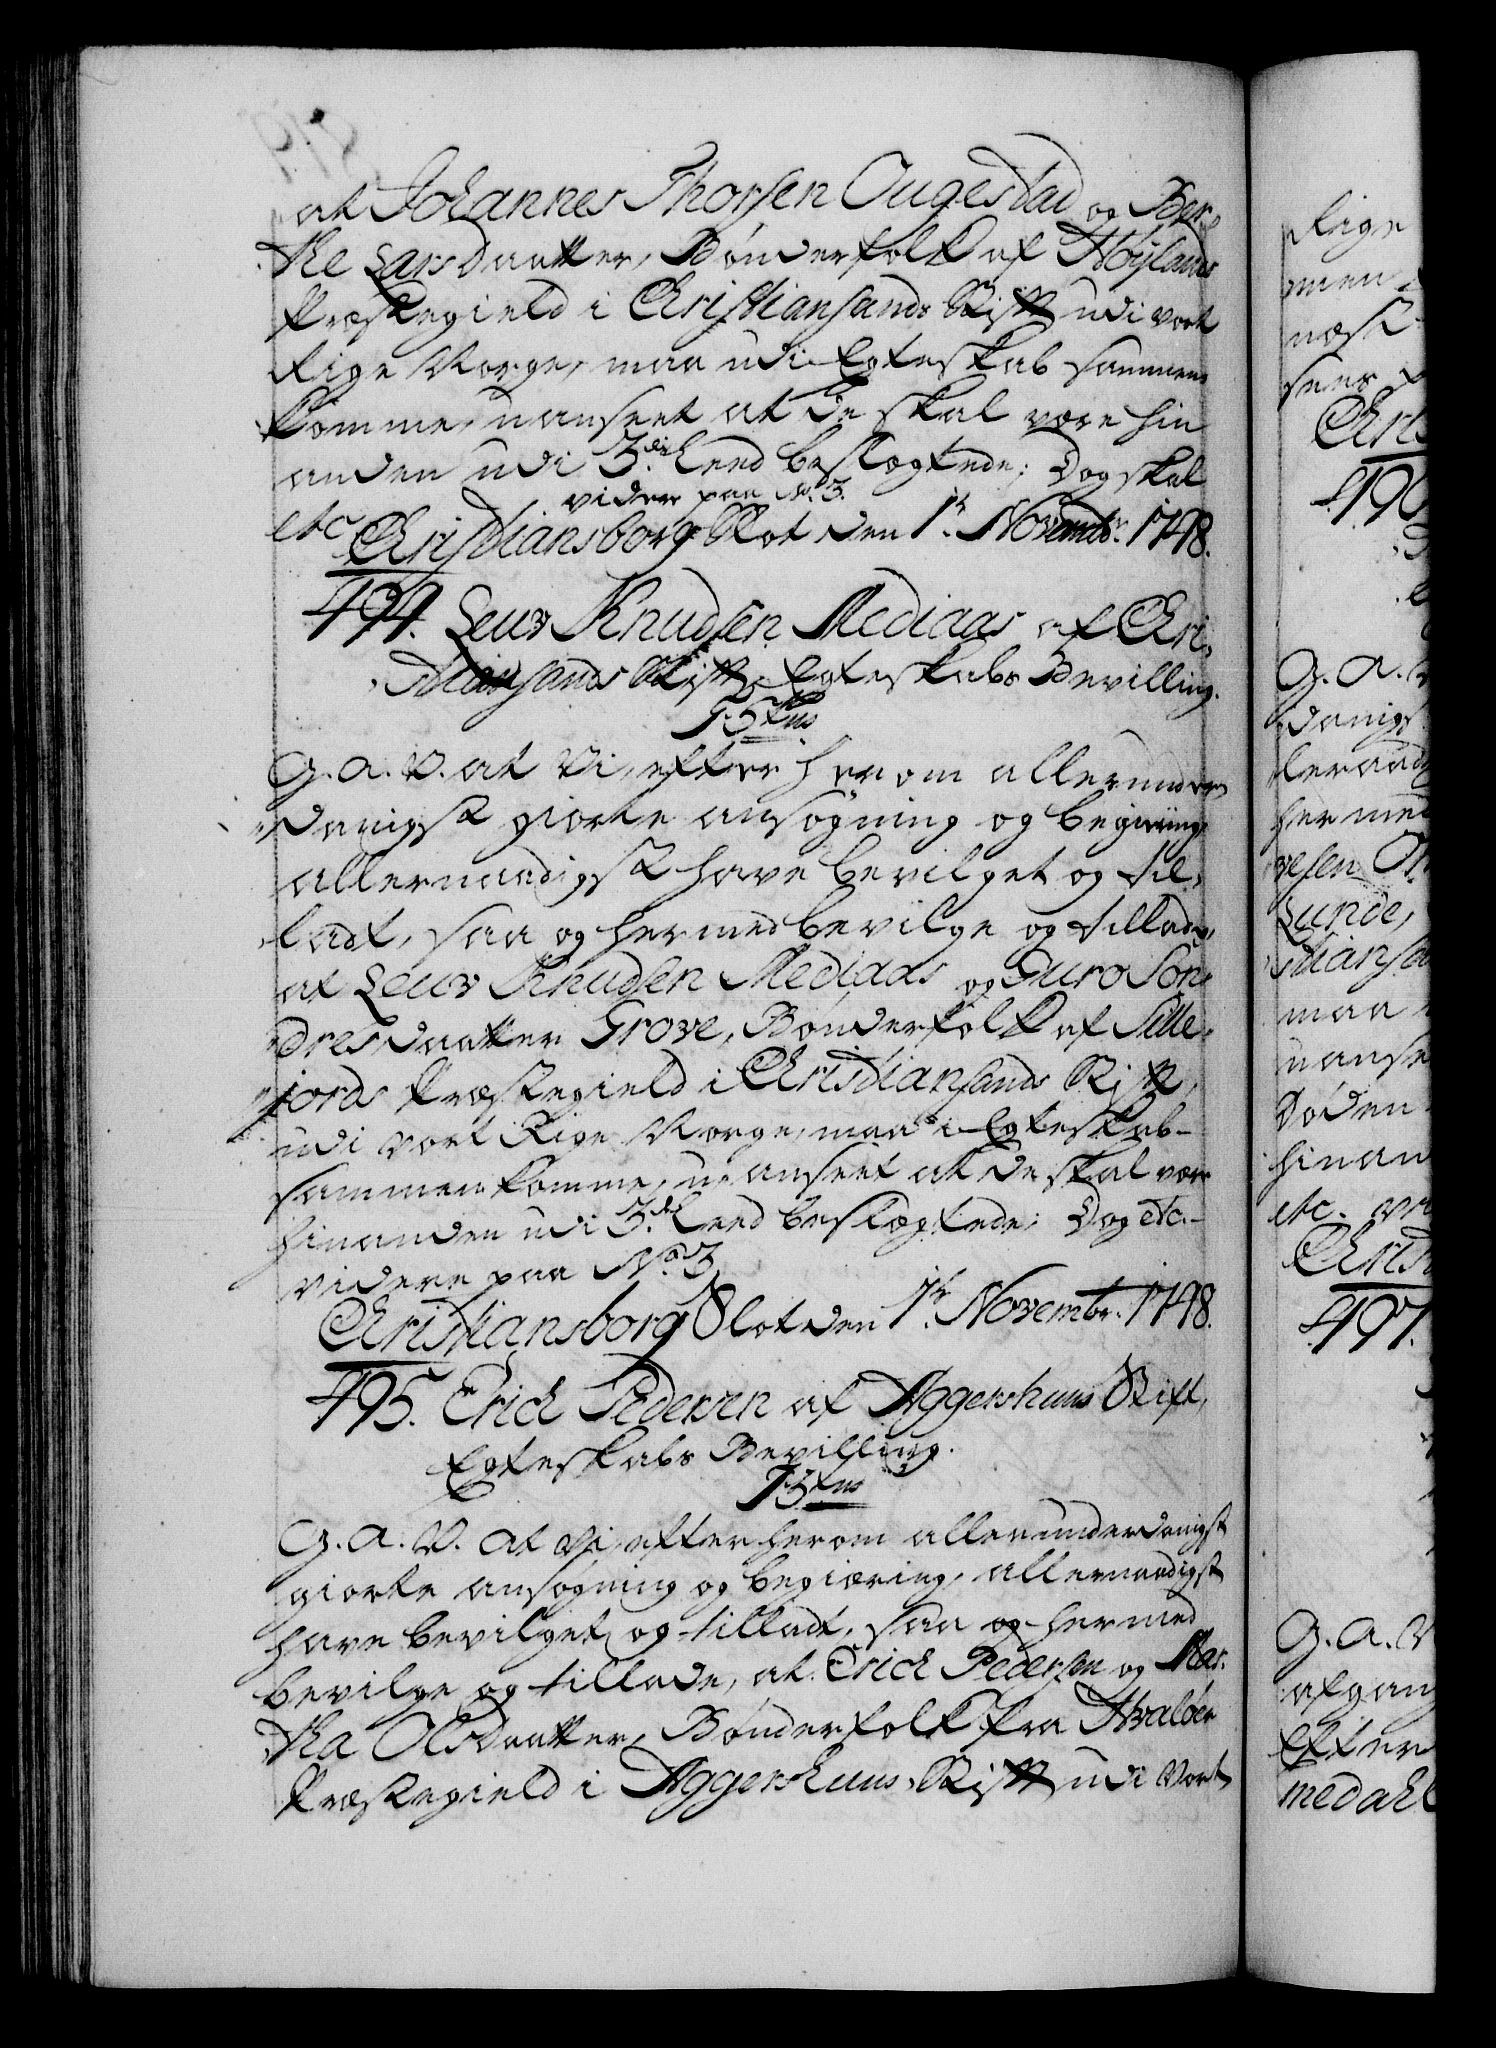 at Johannes Thorsen Ougestad og Ber-
the Larsdaatter, Bønderfolk af Høylands
Præstegield i Christiansands Stift udi vort
Rige Norge, maa udi Egteskab sammen-
komme, uanseet at de skal være hin
anden udi 3die Leed beslægtede; Dog skal
etc videre paa No 3.
Christiansborg Slot den 1te Novembr. 1748.
494. Leuv Knudsen Mediaas af Chri-
stiansands Stift, Egteskabs Bevilling.
G. A. V. at Vi, efter herom allerunder-
danigst giorte ansøgning og begiering,
allernaadigst have bevilget og til-
ladt, saa og hermed bevilge og tillade,
at Leuv Knudsen Mediaas og Guro Søn-
dresdaatter Grove, Bønderfolk af Sille-
jords Præstegield i Christiansands Stift,
udi vort Rige Norge, maa i Egteskab
sammenkomme, uanseet at de skal være
hinanden udi 3die Leed beslægtede; Dog etc.
videre paa No. 3
Christiansborg Slot den 1te Novembr. 1748.
495. Erich Pedersen af Aggershuus Stift,
Egteskabs Bevilling.
G. A. V. at Vi, efter herom allerunderdanigst
giorte ansøgning og begiæring, allernaadigst
have bevilget og tilladt, saa og hermed
bevilge og tillade, at Erich Pedersen og Mar-
tha Olsdaatter, Bønderfolk fra Hvaløer
Præstegield i Aggershuus Stift udi Vort
Rige
men
næst
496
G. A. V
danigst
hermed
Lunde,
stiansa
maa
uanse
Døden
hinan
etc.
497.
G. A. V
afgang
Efter
medahl